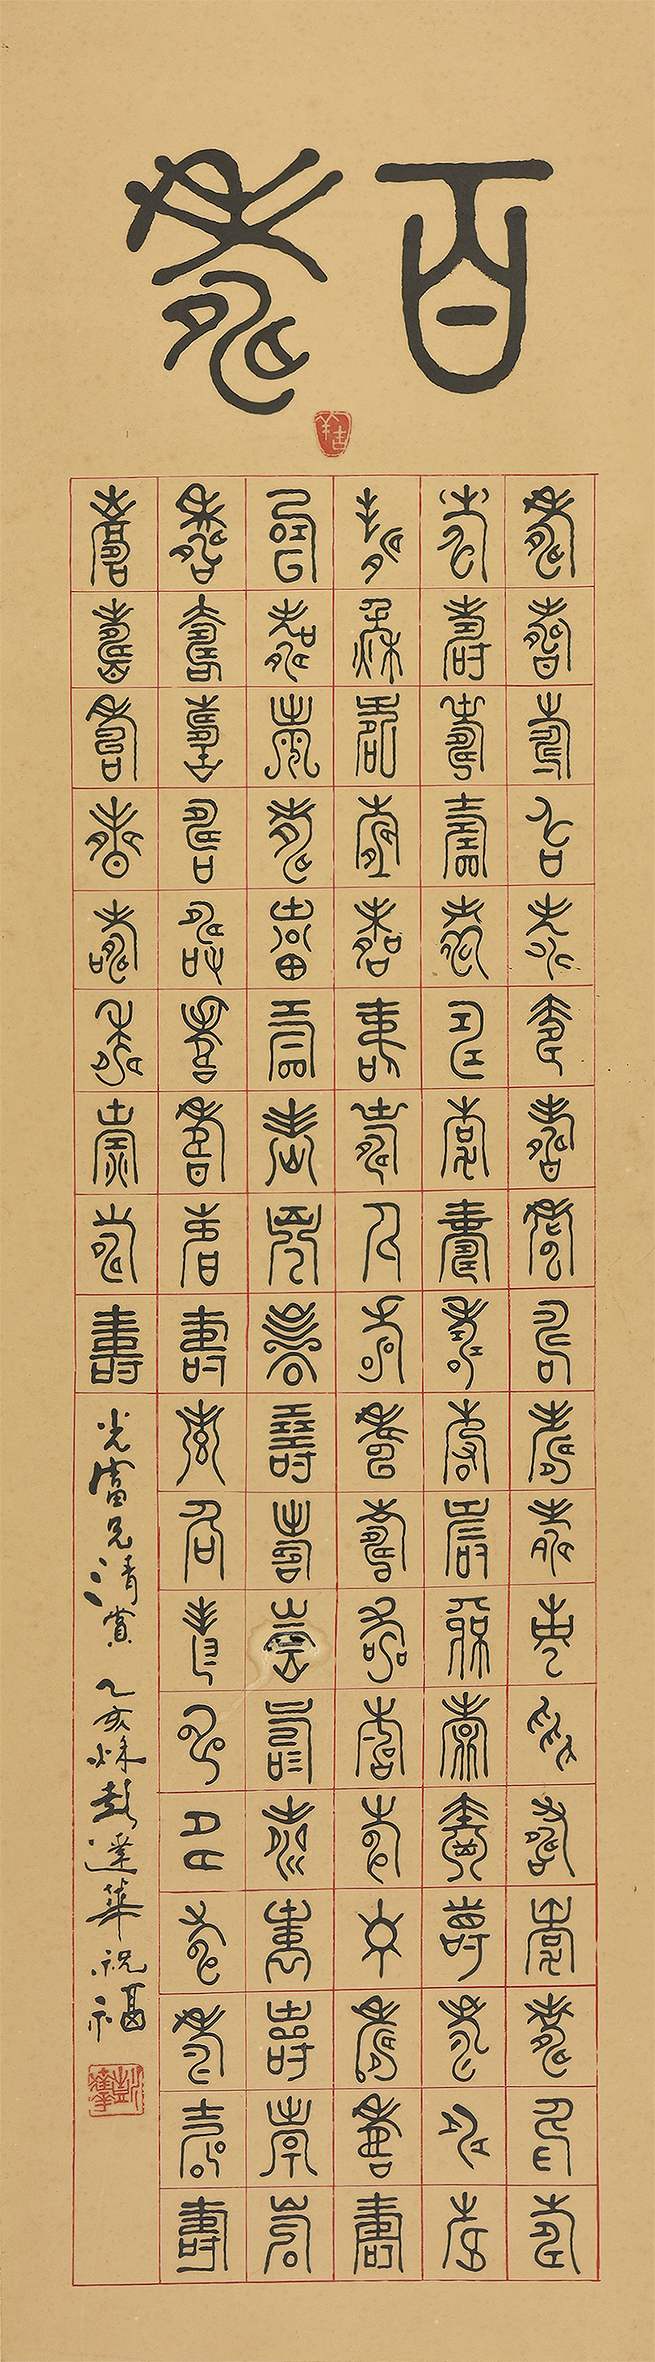 百壽
吉羊
壽壽壽壽壽壽壽壽壽壽壽壽壽壽壽壽壽壽
壽壽壽壽壽壽壽壽壽壽壽壽壽壽壽壽壽壽
壽壽壽壽壽壽壽壽壽壽壽壽壽壽壽壽壽壽
壽壽壽壽壽壽壽壽壽壽壽壽壽壽壽壽壽壽
壽壽壽壽壽壽壽壽壽壽壽壽壽壽壽壽壽壽
壽壽壽壽壽壽壽壽壽
光富兄清賞 乙亥秋彭達華祝福